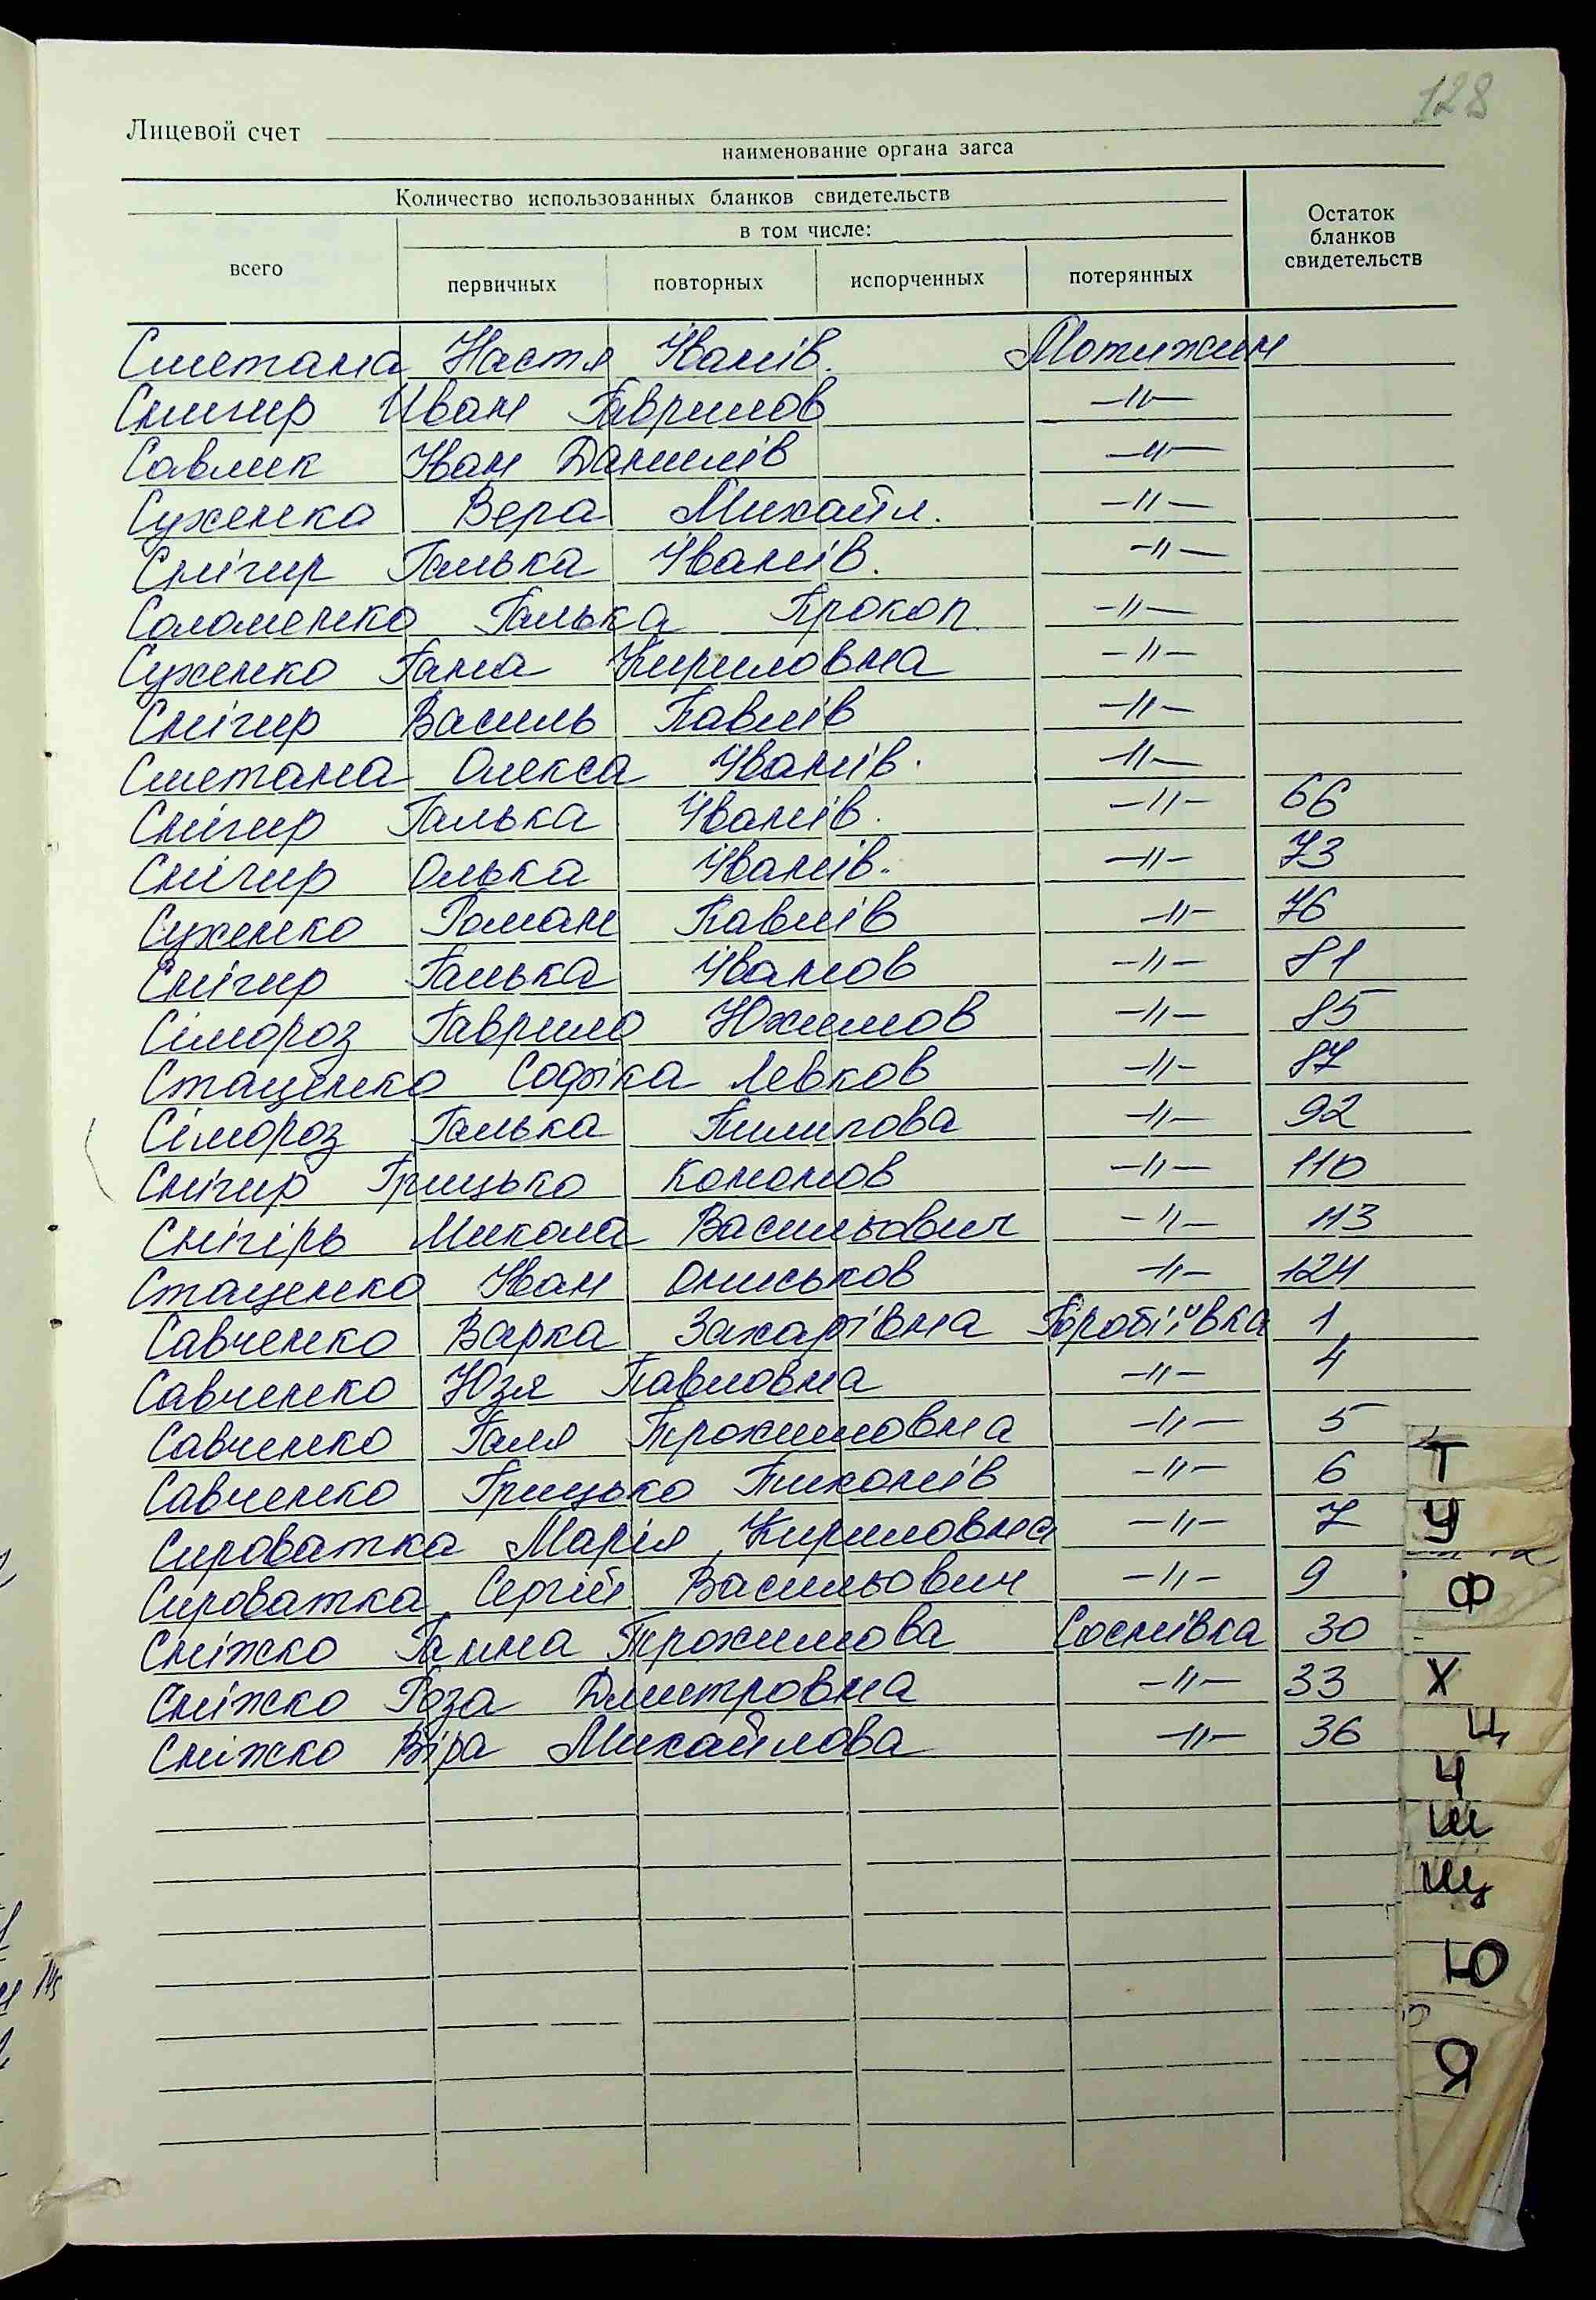 128
Лицевой счет
наименование органа загса
Количество использованных бланков свидетельств
в том числе:
всего первичных повторных испорченных потерянных Остаток бланков свидетельств
Сметана Настя Іванів. Мотижин
Снигир Иван Гаврилов -"-
Савлик Іван Данилів -"-
Суженка Вера Михайл. -"-
Снігир Галька Іванів. -"-
Соломенко Галька Прокоп. -"-
Суженко Гана Кириловна -"-
Снігир Василь Павлів -"-
Сметана Олекса Іванів. -"-
Снігир Галька Іванів. -"- 66
Снігир Олька Іванів. -"- 73
Суженко Роман Павлів -"- 76
Снігир Галька Іванов -"- 81
Сімороз Гаврило Юхимов -"- 85
Стаценко Софіка Левков -"- 87
Сімороз Галька Пилипова -"- 92
Снігир Грицько Кононов -"- 110
Снігірь Микола Васильович -"- 113
Стаценко Іван Ониськов -"- 124
Савченко Варка Захарівна Горобіївка 1
Савченко Юзя Павловна -"- 4
Савченко Галя Трохимовна -"- 5
Савченко Грицько Тихонів -"- 6
Сироватка Марія Кириловна -"- 7
Сироватка Сергій Васильович -"- 9
Сніжко Ганна Трохимова Соснівка 30
Сніжко Роза Дмитровна -"- 33
Сніжко Віра Михайлова -"- 36
Т
У
Ф
Х
Ц
Ч
Ш
Щ
Ю
Я